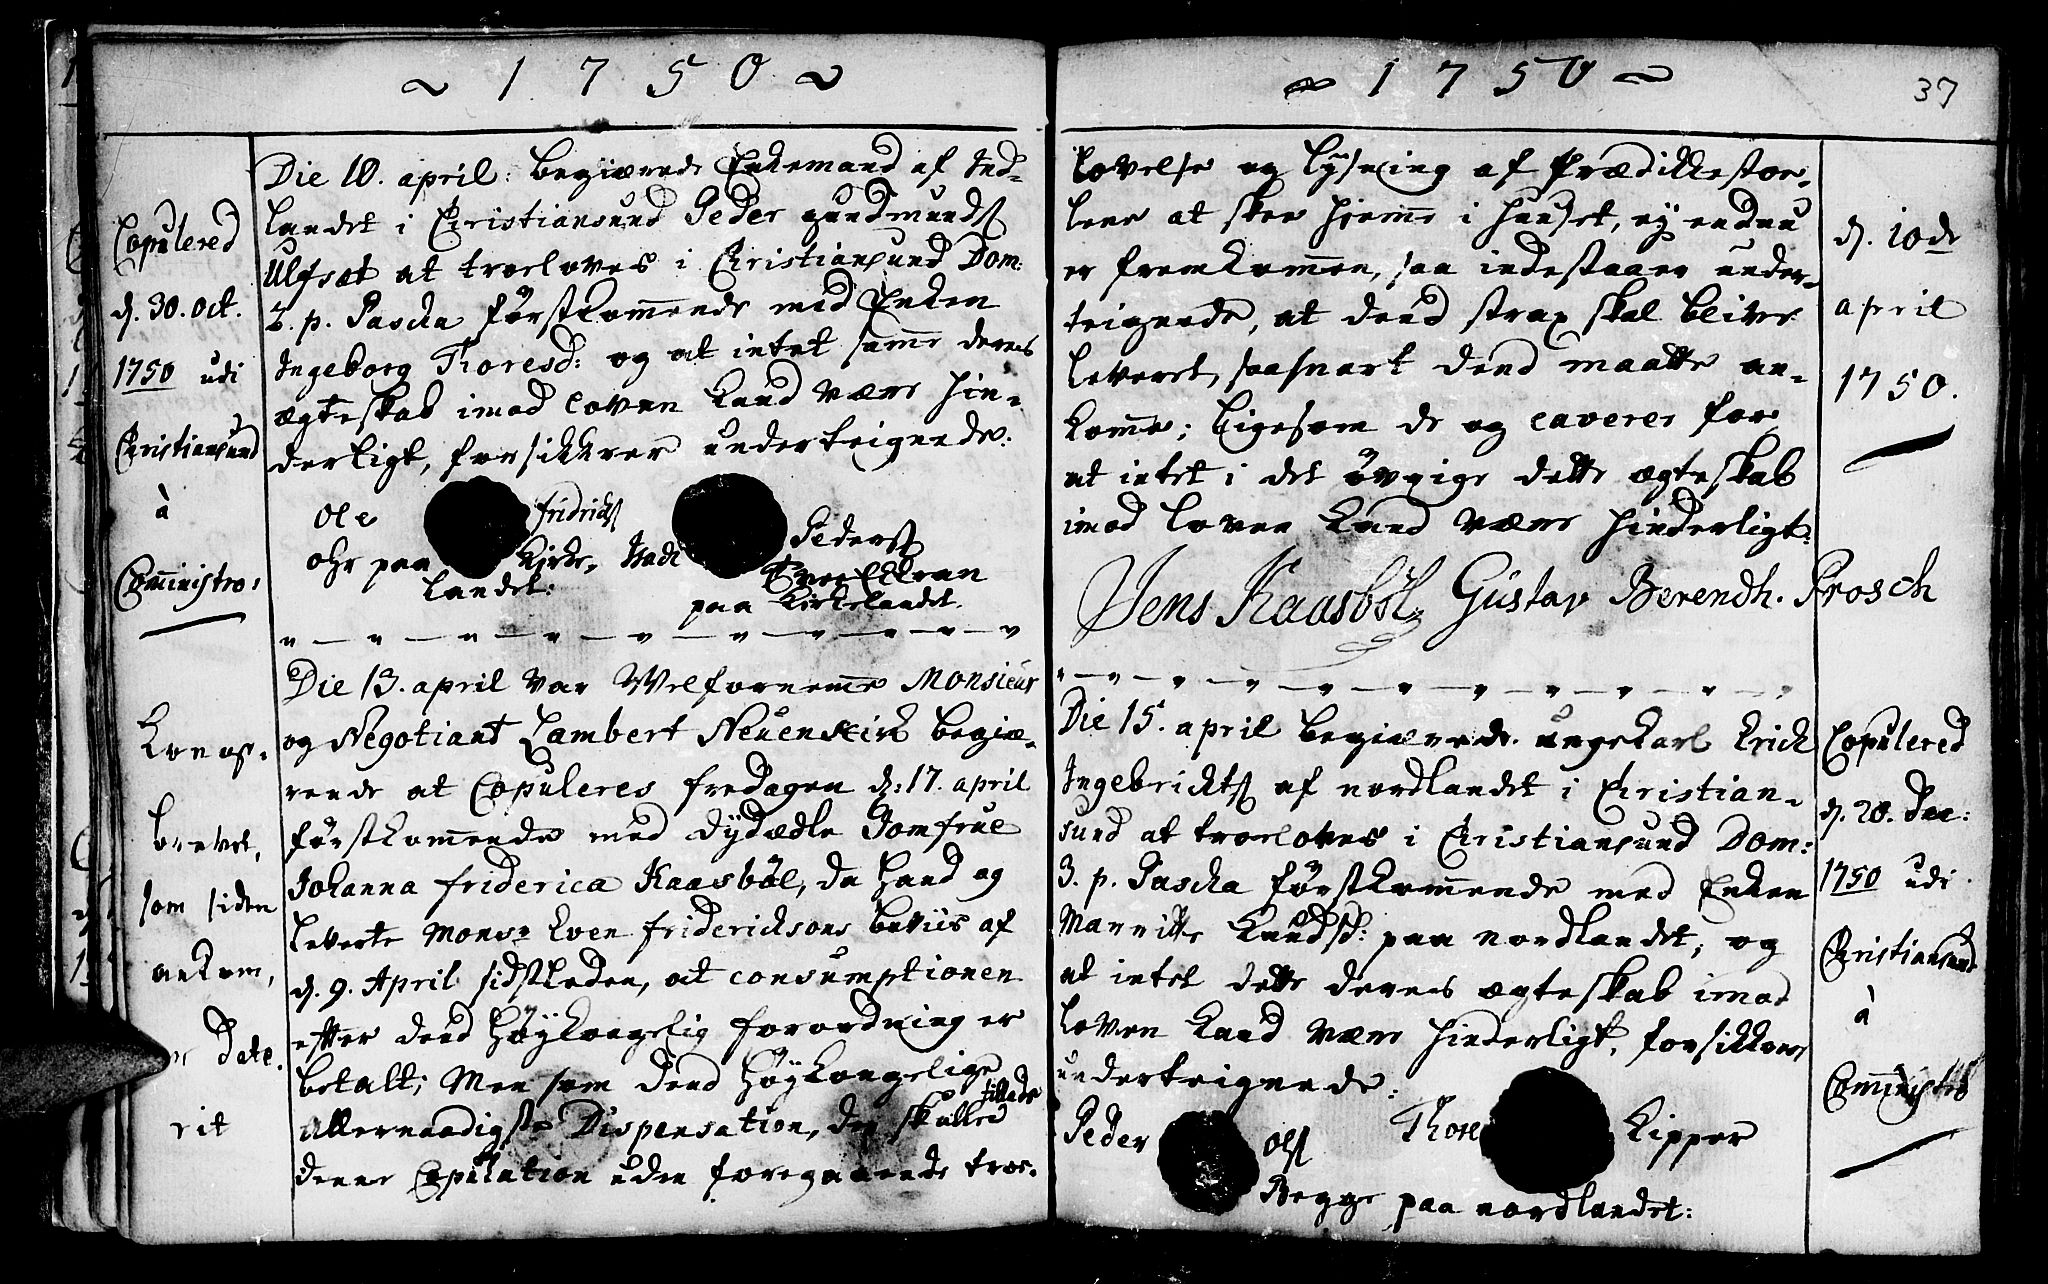 ~ 1750 ~
Copulered
d. 30. oct.
1750 udi
Christiansund
à
Comministro:
Die 10. april: begiærede Enkemand af Ind-
landet i Christiansund Peder gundmunds
Ulfsæt at troeloves i Christiansund Dom:
2. p. Pascha förstkommende med Enken
Ingeborg Thoresd: og at intet samme deres
ægteskab imod loven kand være hin-
derligt, forsikkrer undertegnede:
Ole fridrichs
ohr paa Kirke,
landet:
Peders
paa Kirkelandet.
Die 13. april var Welfornemme Monsieur
og Negotiant Lambert Neuenkirk begiæ-
rende at Copuleres fredagen d: 17. april
förstkommende med dydædle Jomfrue
Johanna friderica Kaasböl, da hand og
leverte Monsr Even fridericksons beviis af
d. 9. April sidstleden, at consumptionen
efter dend Höykongelig forordning er
betalt; Men som dend Höykongelige
allernaadigste Dispensation, der skulle tillade
denne Copulation uden foregaaende troe-
Konge-
brevet,
som siden
ankom,
date.
rit
~ 1750 ~
37
lovelse og lysning af Prædikkestoe-
lene at skee hjemme i huuset, ey endnu
er fremkommen, saa indestaaer under-
teignede, at dend strax skal blive
leveret, saasnart dend maatte an-
komme; ligesom de og caverer for,
at intet i det övrige dette ægteskab
imod loven kand være hinderligt.
Jens Kaasböl Gustav Berendh. Prosch
d. 10de
april
1750.
Die 15. april begiærede ungekarl Erich
Ingebrichts af nordlandet i Christian-
sund at troeloves i Christiansund Dom:
3. p. Pascha förstkommende med Enken
Marritte Knudsd: paa nordlandet, og
at intet dette deres ægteskab imod
loven kand være hinderligt, forsikkrer
underteignede:
Peder Ols
Thore Kipper
Begge paa nordlandet:
Copulered
d. 20. Dec:
1750 udi
Christiansund
à
Comministro